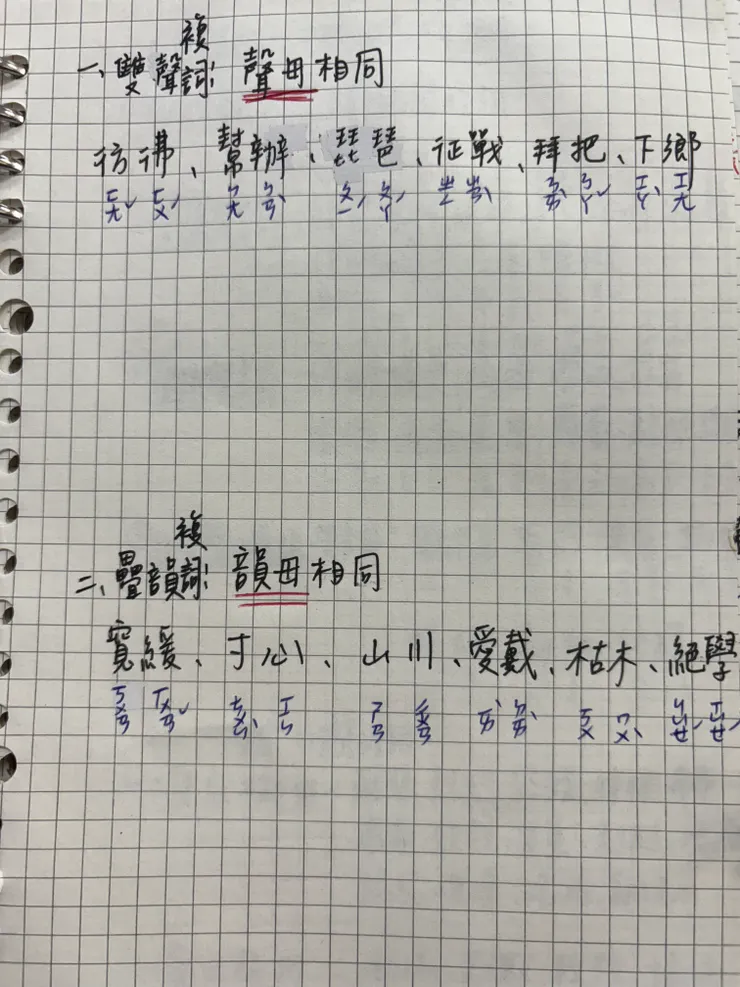 複
一、雙聲詞: 聲母相同
彷彿、幫辦、琵琶、征戰、拜把、下鄉
ㄈㄤˇ ㄈㄨˊ ㄅㄤ ㄅㄢˋ ㄆㄧˊ ㄆㄚˊ ㄓㄥ ㄓㄢˋ ㄅㄞˋ ㄅㄚˇ ㄒㄧㄚˋ ㄒㄧㄤ
複
二、疊韻詞: 韻母相同
寬緩、寸心、山川、愛戴、枯木、絕學
ㄎㄨㄢ ㄏㄨㄢˇ ㄘㄨㄣˋ ㄒㄧㄣ ㄕㄢ ㄔㄨㄢ ㄞˋ ㄉㄞˋ ㄎㄨ ㄇㄨˋ ㄐㄩㄝˊ ㄒㄩㄝˊ